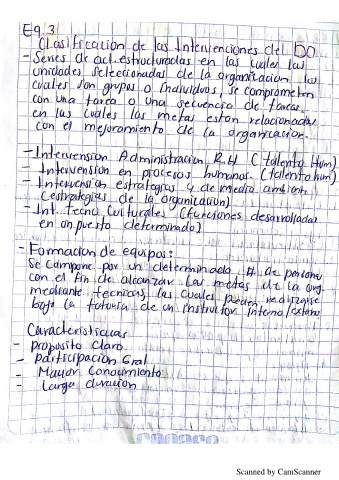 Eq. 3
Clasificacion de las Intervenciones del DO
- Series de act. estructuradas en las cuales las
unidades seleccionadas de la organizacion las
cuales son grupos o individuos, se comprometen
con una tarea o una secuencia de tareas,
en las cuales las metas estan relacionadas
con el mejoramiento de la organizacion.
- Intervension Administracion R.H (talento Hum)
- Intervension en procesos humanos. (talento hum)
- Intervension estrategias y de medio ambiente
(estrategias de la organizacion)
- Int. Tecno Culturales (funciones desarrolladas
en un puesto determinado)
- Formacion de equipos:
Se compone por un determinado # de personas
con el fin de alcanzar las metas de la org.
mediante tecnicas, las cuales pueden realizarse
bajo la tutoria de un instructor interno/externo
Caracteristicas
- proposito claro.
- participacion Gral
- Mayor Conocimiento
- Larga duracion
Scanned by CamScanner